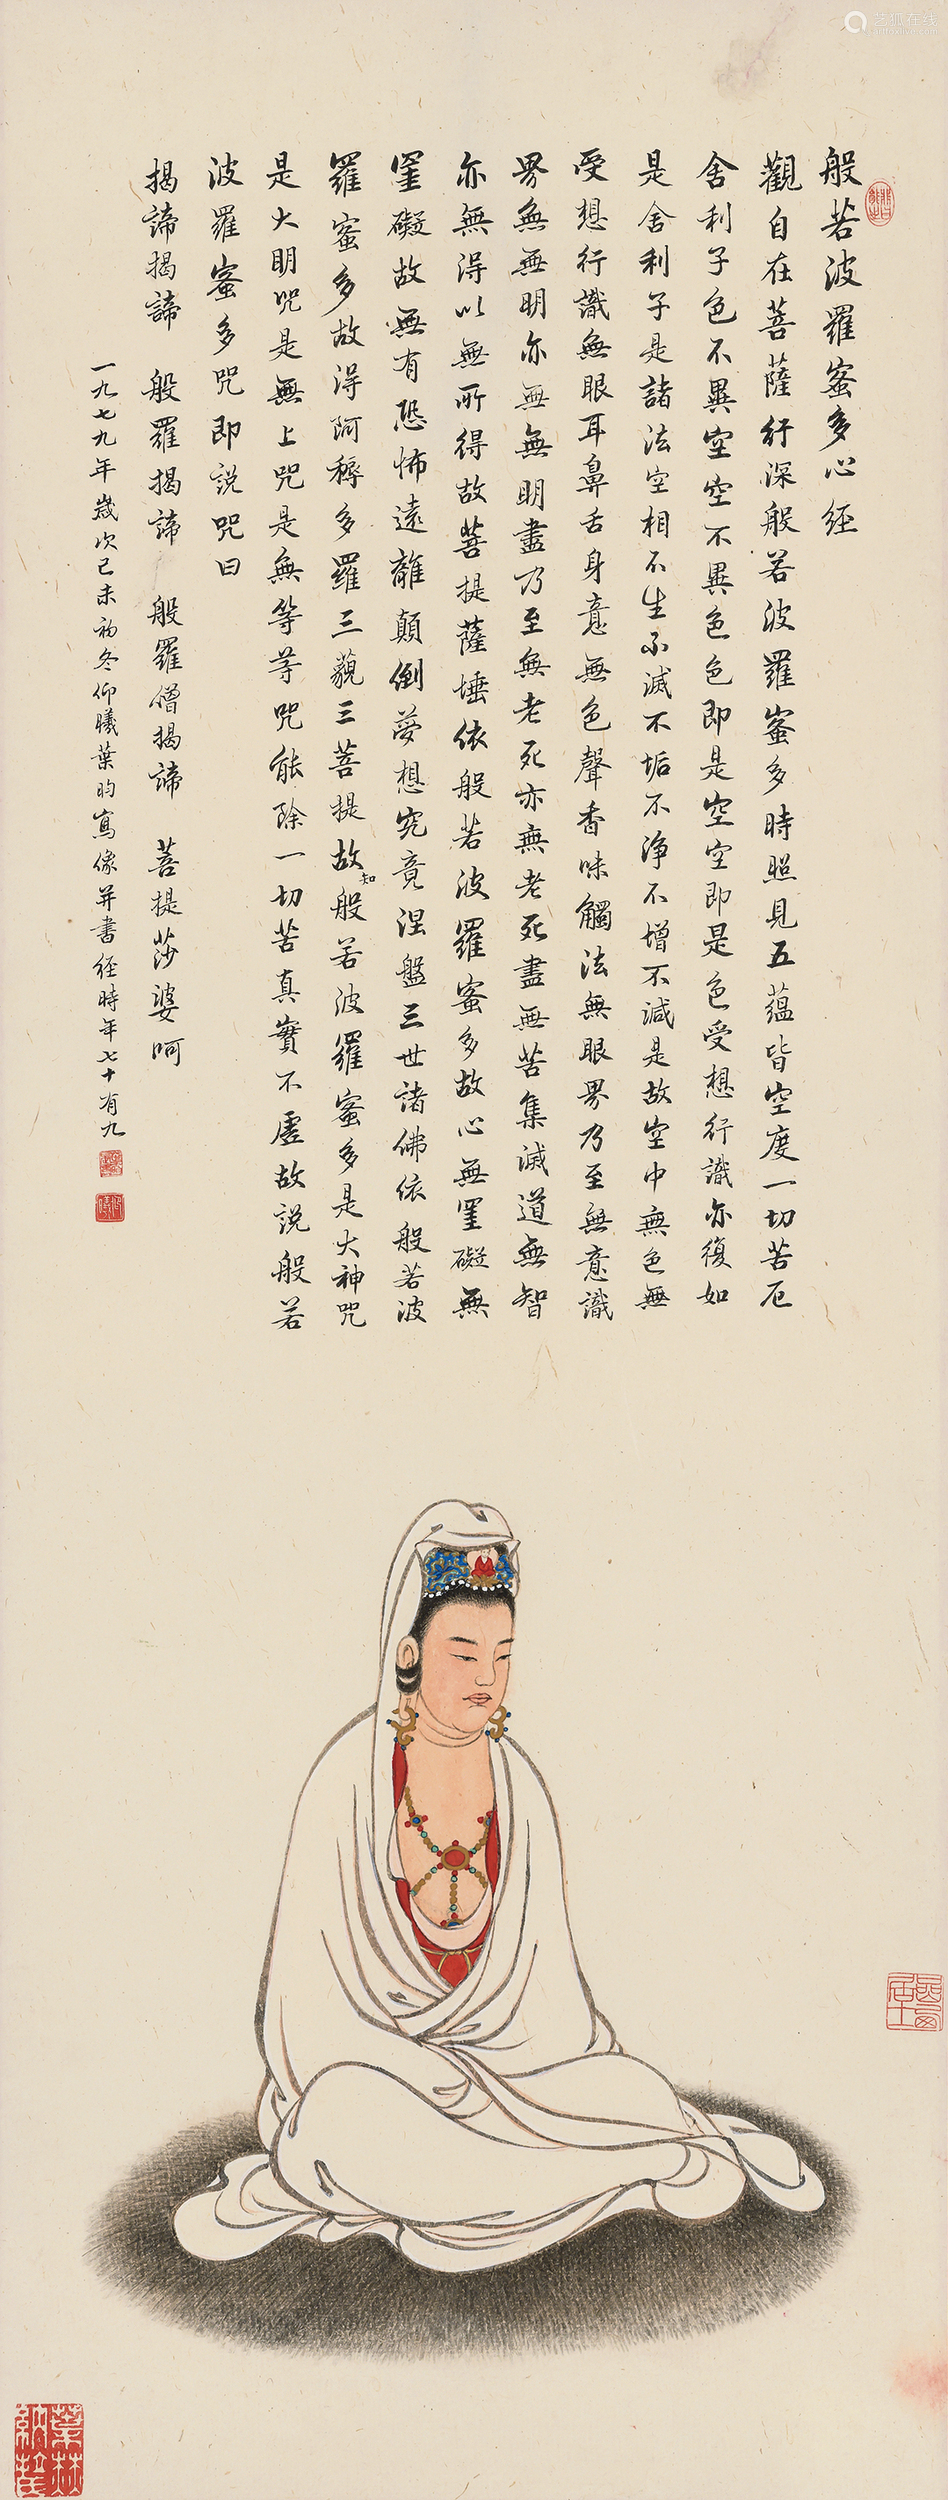 般若波羅蜜多心經
觀自在菩薩行深般若波羅蜜多時照見五蘊皆空度一切苦厄
舍利子色不異空空不異色色即是空空即是色受想行識亦復如
是舍利子是諸法空相不生不滅不垢不淨不增不減是故空中無色無
受想行識無眼耳鼻舌身意無色聲香味觸法無眼界乃至無意識
界無無明亦無無明盡乃至無老死亦無老死盡無苦集滅道無智
亦無得以無所得故菩提薩埵依般若波羅蜜多故心無罣礙無
罣礙故無有恐怖遠離顛倒夢想究竟涅盤三世諸佛依般若波
羅蜜多故得阿耨多羅三藐三菩提故知般若波羅蜜多是大神咒
是大明咒是無上咒是無等等咒能除一切苦真實不虛故説般若
波羅蜜多咒即説咒曰
揭諦揭諦 般羅揭諦 般羅僧揭諦 菩提莎婆呵
一九七九年歲次己未初冬仰曦葉昀寫像并書經時年七十有九
艺狐在线